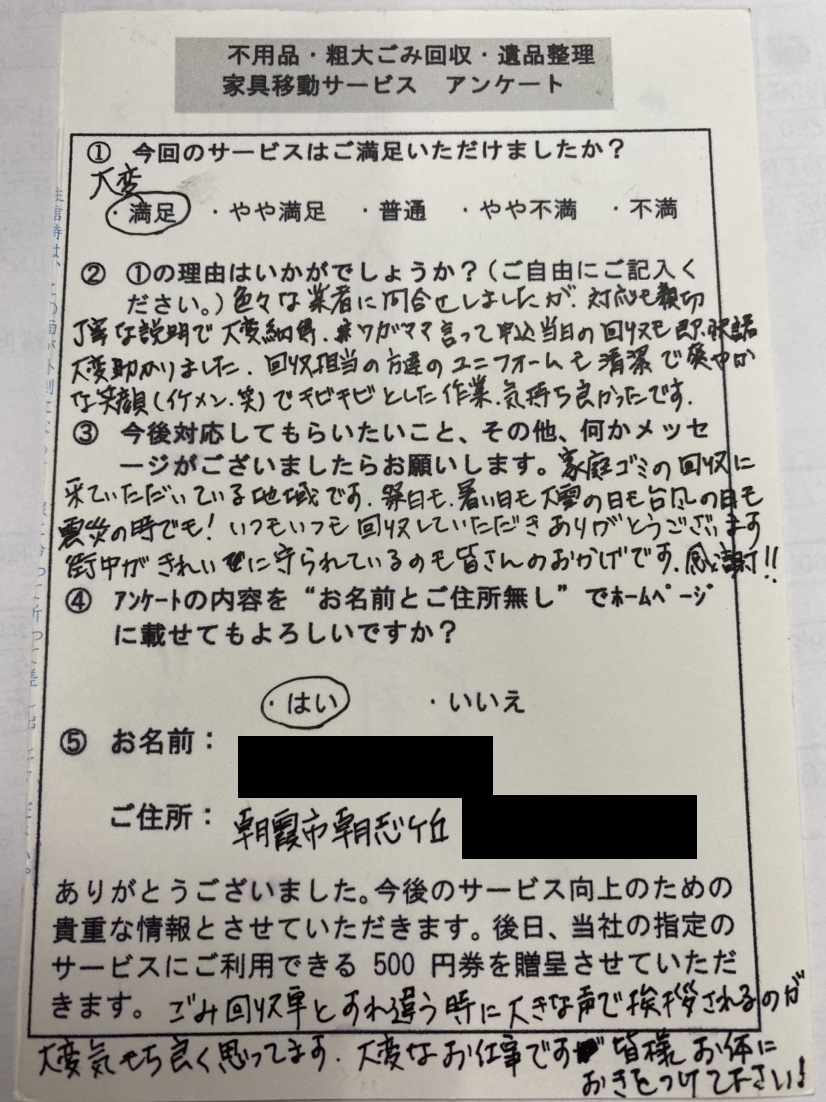 不用品・粗大ごみ回収・遺品整理
家具移動サービス アンケート
① 今回のサービスはご満足いただけましたか？
大変
・満足 ・やや満足 ・普通 ・やや不満 ・不満
② ①の理由はいかがでしょうか？（ご自由にご記入く
ださい。）色々な業者に問合せしましたが、対応も親切
丁寧な説明で大変納得、ワガママ言って申込当日の回収も即承諾
大変助かりました。回収担当の方達のユニフォームも清潔で爽やか
な笑顔（イケメン.笑）でキビキビとした作業、気持ち良かったです。
③ 今後対応してもらいたいこと、その他、何かメッセ
ージがございましたらお願いします。家庭ゴミの回収に
来ていただいている地域です。祭日も、暑い日も大雪の日も台風の日も
震災の時でも！いつもいつも回収していただきありがとうございます
街中がきれいに守られているのも皆さんのおかげです。感謝!!
④ ｱﾝｹｰﾄの内容を“お名前とご住所無し”でﾎｰﾑﾍﾟｰｼﾞ
に載せてもよろしいですか？
・はい ・いいえ
⑤ お名前：
ご住所：朝霞市朝志ヶ丘
ありがとうございました。今後のサービス向上のための
貴重な情報とさせていただきます。後日、当社の指定の
サービスにご利用できる 500 円券を贈呈させていただ
きます。ごみ回収車とすれ違う時に大きな声で挨拶されるのが
大変気もち良く思ってます。大変なお仕事です 皆様お体に
おきをつけて下さい！